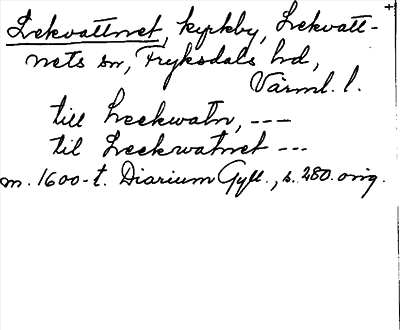 Lekvattnet, kyrkby, Lekvatt-
nets sn, Fryksdals hd,
Värml. l.
till Leekwatn, ---
til Leekwatnet ---
m. 1600-t. Diarium Gyll., s. 280. orig.